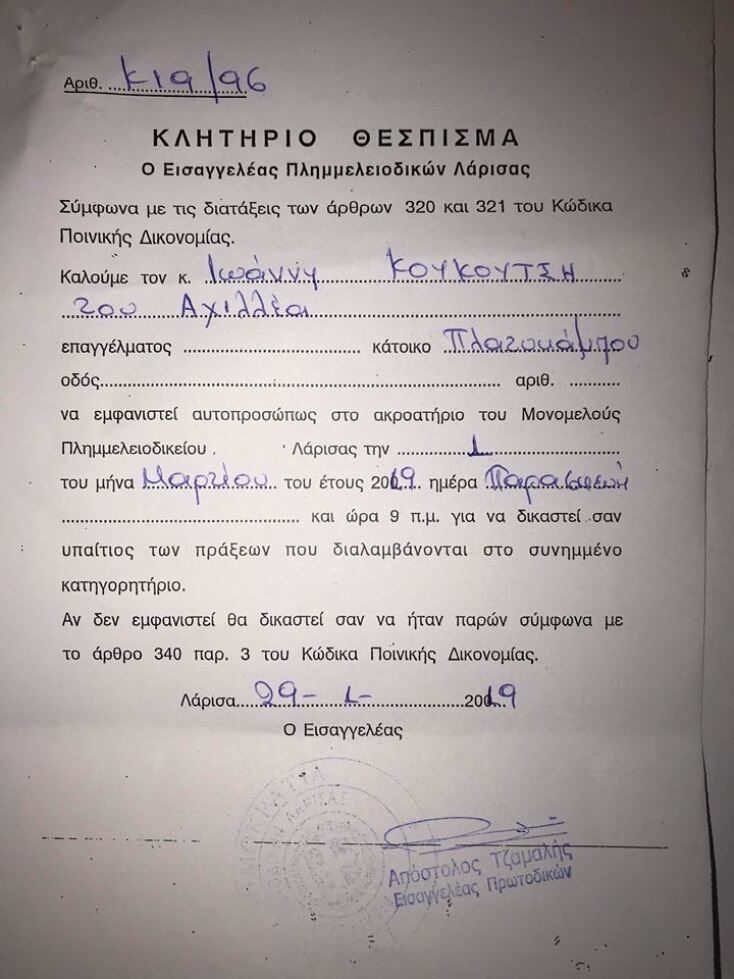 Αριθ. Κ19/96
ΚΛΗΤΗΡΙΟ ΘΕΣΠΙΣΜΑ
Ο Εισαγγελέας Πλημμελειοδικών Λάρισας
Σύμφωνα με τις διατάξεις των άρθρων 320 και 321 του Κώδικα
Ποινικής Δικονομίας.
Καλούμε τον κ. Ιωάννη ΚΟΥΚΟΥΤΣΗ
του Αχιλλέα
επαγγέλματος .................... κάτοικο Πλατυκάμπου
οδός.................... αριθ. ...........
να εμφανιστεί αυτοπροσώπως στο ακροατήριο του Μονομελούς
Πλημμελειοδικείου Λάρισας την 1
του μήνα Μαρτίου του έτους 2019 ημέρα Παρασκευή
.................... και ώρα 9 π.μ. για να δικαστεί σαν
υπαίτιος των πράξεων που διαλαμβάνονται στο συνημμένο
κατηγορητήριο.
Αν δεν εμφανιστεί θα δικαστεί σαν να ήταν παρών σύμφωνα με
το άρθρο 340 παρ. 3 του Κώδικα Ποινικής Δικονομίας.
Λάρισα 29-1-2019
Ο Εισαγγελέας
Απόστολος Τζαμαλής
Εισαγγελέας Πρωτοδικών